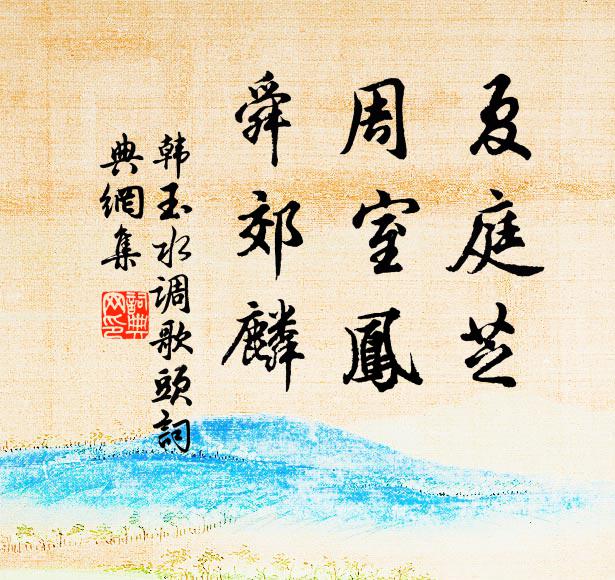 夏庭芝
周室鳳
舜郊麟
韩玉水调歌頭詞
典網集
詞典
网印